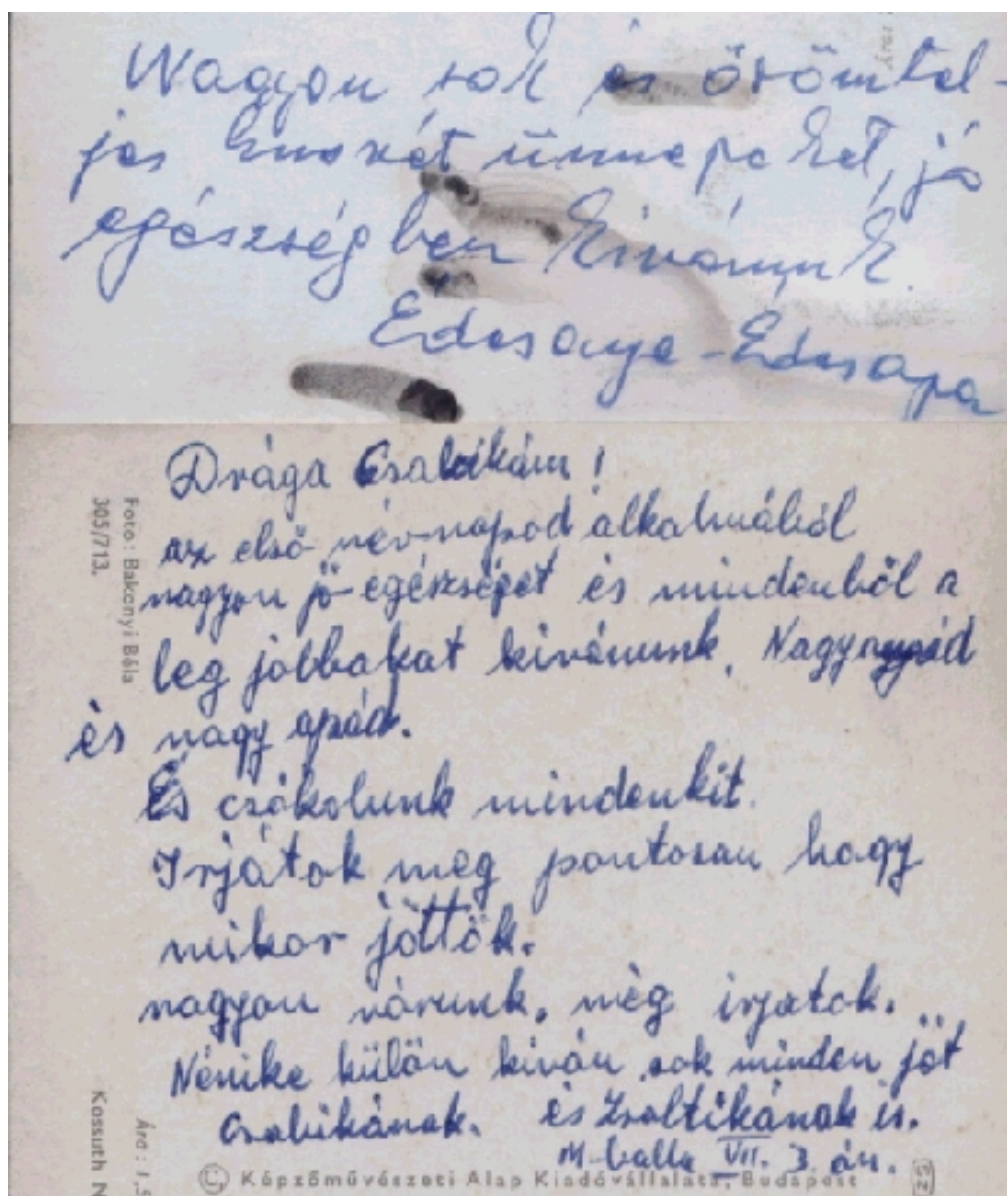 Nagyon sok és örömtel-
jes husvét ünnepeket, jó
egészségben kivánunk.
Edesanya - Edesapa
Drága Csabikám!
az első név-napod alkalmából
nagyon jó-egészséget és mindenből a
leg jobbakat kivánunk. Nagyanyád
és nagy apád.
És czókolunk mindenkit.
Irjátok meg pontosan hogy
mikor jöttök.
nagyon várunk. még irjatok.
Nénike külön kiván sok minden jót
Csabikának. és Zsoltikának is.
M-balla VII. 3. án.
Foto: Bakonyi Béla
305/713.
Kossuth N
Ára: 1,5
Képzőművészeti Alap Kiadóvállalata, Budapest